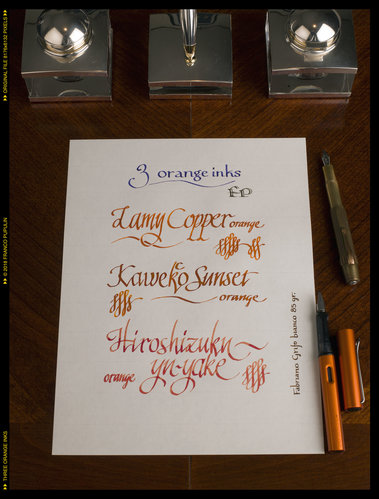 3 orange inks
FP
Lamy Copper orange
Kaweko Sunset
orange
Hiroshizuku
orange yu-yake
Fabriano Grifo bianco 85 gr.
ORIGINAL FILE 8176x6132 PIXELS
© 2018 FRANCO PUPULIN
THREE ORANGE INKS